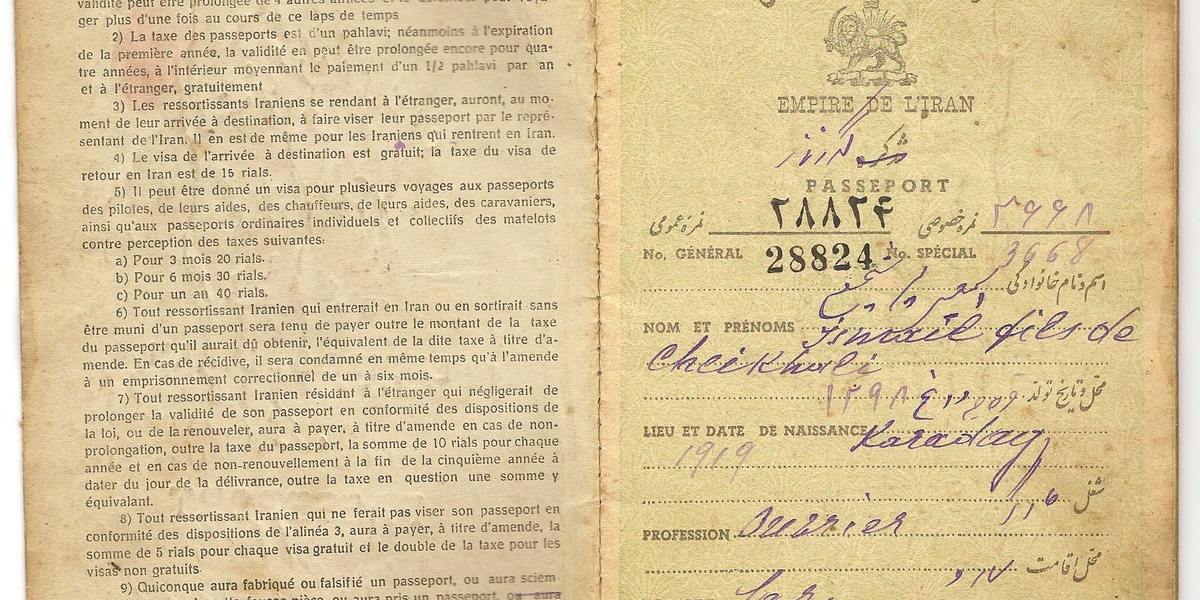 ger plus d'une fois au cours de ce laps de temps
2) La taxe des passeports est d'un pahlavi; néanmoins à l'expiration
de la première année, la validité en peut être prolongée encore pour qua-
tre années, à l'intérieur moyennant le paiement d'un 1/2 pahlavi par an
et à l'étranger, gratuitement
3) Les ressortissants Iraniens se rendant à l'étranger, auront, au mo-
ment de leur arrivée à destination, à faire viser leur passeport par le repré-
sentant de l'Iran. Il en est de même pour les Iraniens qui rentrent en Iran.
4) Le visa de l'arrivée à destination est gratuit; la taxe du visa de
retour en Iran est de 15 rials.
5) Il peut être donné un visa pour plusieurs voyages aux passeports
des pilotes, de leurs aides, des chauffeurs, de leurs aides, des caravaniers,
ainsi qu'aux passeports ordinaires individuels et collectifs des matelots
contre perception des taxes suivantes:
a) Pour 3 mois 20 rials.
b) Pour 6 mois 30 rials.
c) Pour un an 40 rials.
6) Tout ressortissant Iranien qui entrerait en Iran ou en sortirait sans
être muni d'un passeport sera tenu de payer outre le montant de la taxe
du passeport qu'il aurait dû obtenir, l'équivalent de la dite taxe à titre d'a-
mende. En cas de récidive, il sera condamné en même temps qu'à l'amende
à un emprisonnement correctionnel de un à six mois.
7) Tout ressortissant Iranien résidant à l'étranger qui négligerait de
prolonger la validité de son passeport en conformité des dispositions de
la loi, ou de la renouveler, aura à payer, à titre d'amende en cas de non-
prolongation, outre la taxe du passeport, la somme de 10 rials pour chaque
année et en cas de non-renouvellement à la fin de la cinquième année à
dater du jour de la délivrance, outre la taxe en question une somme y
équivalent.
8) Tout ressortissant Iranien qui ne ferait pas viser son passeport en
conformité des dispositions de l'alinéa 3, aura à payer, à titre d'amende, la
somme de 5 rials pour chaque visa gratuit et le double de la taxe pour les
visas non gratuits
9) Quiconque aura fabriqué ou falsifié un passeport, ou aura sciem-
EMPIRE DE L'IRAN
PASSEPORT
نمره عمومی ۲۸۸۲۴ نمره خصوصی
No. GÉNÉRAL 28824 No. SPÉCIAL 3668
اسم و نام خانوادگی
NOM ET PRÉNOMS Ismaël fils de
Cheikhali
محل و تاریخ تولد ۱۲۹۸
LIEU ET DATE DE NAISSANCE Karadag
1919
شغل
PROFESSION Ouvrier
محل اقامت